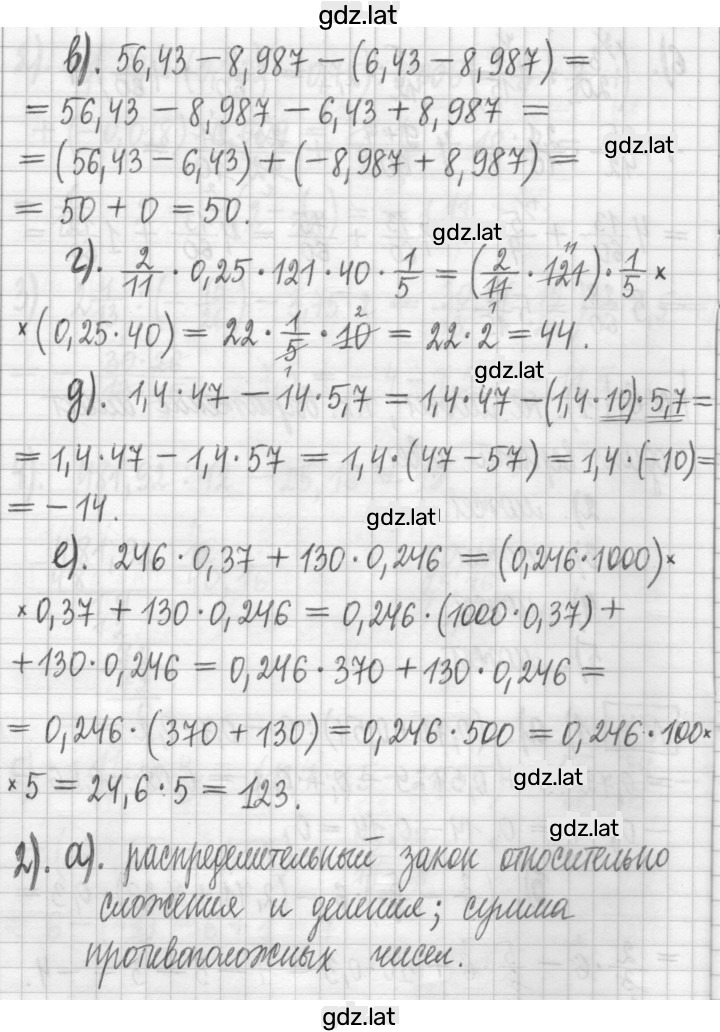 gdz.lat
в). 56,43 − 8,987 − (6,43 − 8,987) =
= 56,43 − 8,987 − 6,43 + 8,987 =
= (56,43 − 6,43) + (−8,987 + 8,987) =
gdz.lat
= 50 + 0 = 50.
gdz.lat
г). 2/11 · 0,25 · 121 · 40 · 1/5 = (2/11 · 121 11) · 1/5 ×
× (0,25 · 40) = 22 · 1/5 1 · 10 2 = 22 · 2 = 44.
gdz.lat
д). 1,4 · 47 − 14 · 5,7 = 1,4 · 47 − (1,4 · 10) · 5,7 =
= 1,4 · 47 − 1,4 · 57 = 1,4 · (47 − 57) = 1,4 · (−10) =
= −14.
gdz.lat
е). 246 · 0,37 + 130 · 0,246 = (0,246 · 1000) ×
× 0,37 + 130 · 0,246 = 0,246 · (1000 · 0,37) +
+ 130 · 0,246 = 0,246 · 370 + 130 · 0,246 =
= 0,246 · (370 + 130) = 0,246 · 500 = 0,246 · 100 ×
× 5 = 24,6 · 5 = 123.
gdz.lat
gdz.lat
2). а). распределительный закон относительно
сложения и деления; сумма
противоположных чисел.
gdz.lat